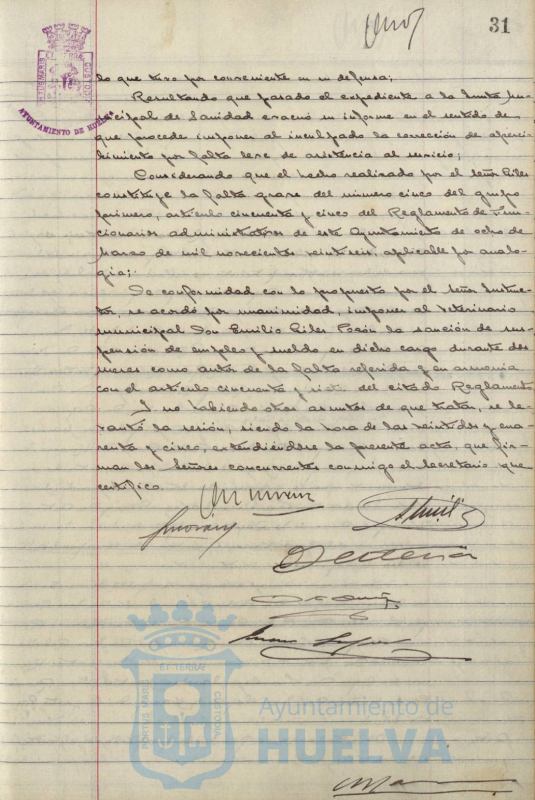 31
do que tuvo por conveniente en su defensa;
Resultando que pasado el expediente a la Junta mu-
nicipal de Sanidad evacuó su informe en el sentido de
que procede imponer al inculpado la corrección de aperci-
bimiento por falta leve de asistencia al servicio;
Considerando que el hecho realizado por el señor Giles
constituye la falta grave del número cinco del grupo
primero, artículo cincuenta y cinco del Reglamento de Fun-
cionarios administrativos de este Ayuntamiento de ocho de
Marzo de mil novecientos veintiseis, aplicable por analo-
gía;
De conformidad con lo propuesto por el señor Instruc-
tor, se acordó por unanimidad, imponer al Veterinario
municipal Don Emilio Giles la sanción de sus-
pensión de empleo y sueldo en dicho cargo durante dos
meses como autor de la falta referida y en armonía
con el artículo cincuenta y siete del citado Reglamento.
Y no habiendo otros asuntos de que tratar, se le-
vantó la sesión, siendo la hora de las veintidos y cua-
renta y cinco, extendiéndose la presente acta, que fir-
man los Señores concurrentes conmigo el Secretario que
certifico.
AYUNTAMIENTO DE HUELVA
PORTUS MARIS ET TERRÆ CUSTODIA
Ayuntamiento de
HUELVA